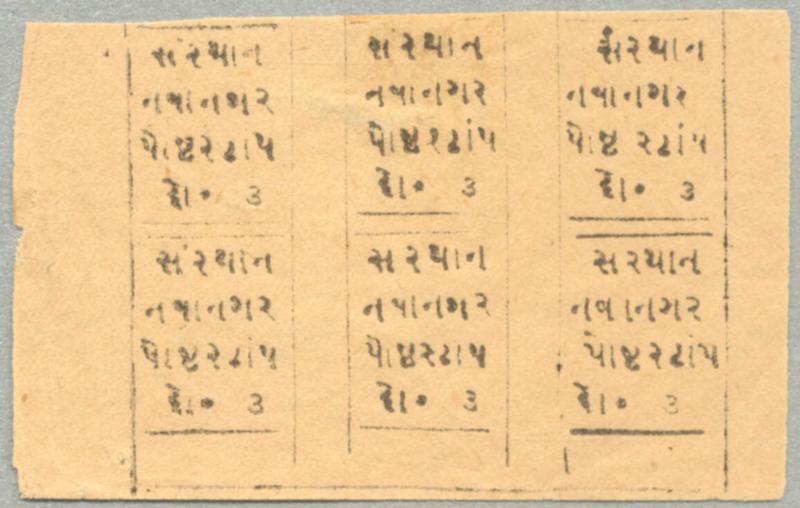 સંસ્થાન
નવાનગર
પોષ્ટસ્ટાંપ
દો૦ ૩
સંસ્થાન
નવાનગર
પોષ્ટસ્ટાંપ
દો૦ ૩
સંસ્થાન
નવાનગર
પોષ્ટ સ્ટાંપ
દો૦ ૩
સંસ્થાન
નવાનગર
પોષ્ટસ્ટાંપ
દો૦ ૩
સંસ્થાન
નવાનગર
પોષ્ટસ્ટાંપ
દો૦ ૩
સંસ્થાન
નવાનગર
પોષ્ટસ્ટાંપ
દો૦ ૩